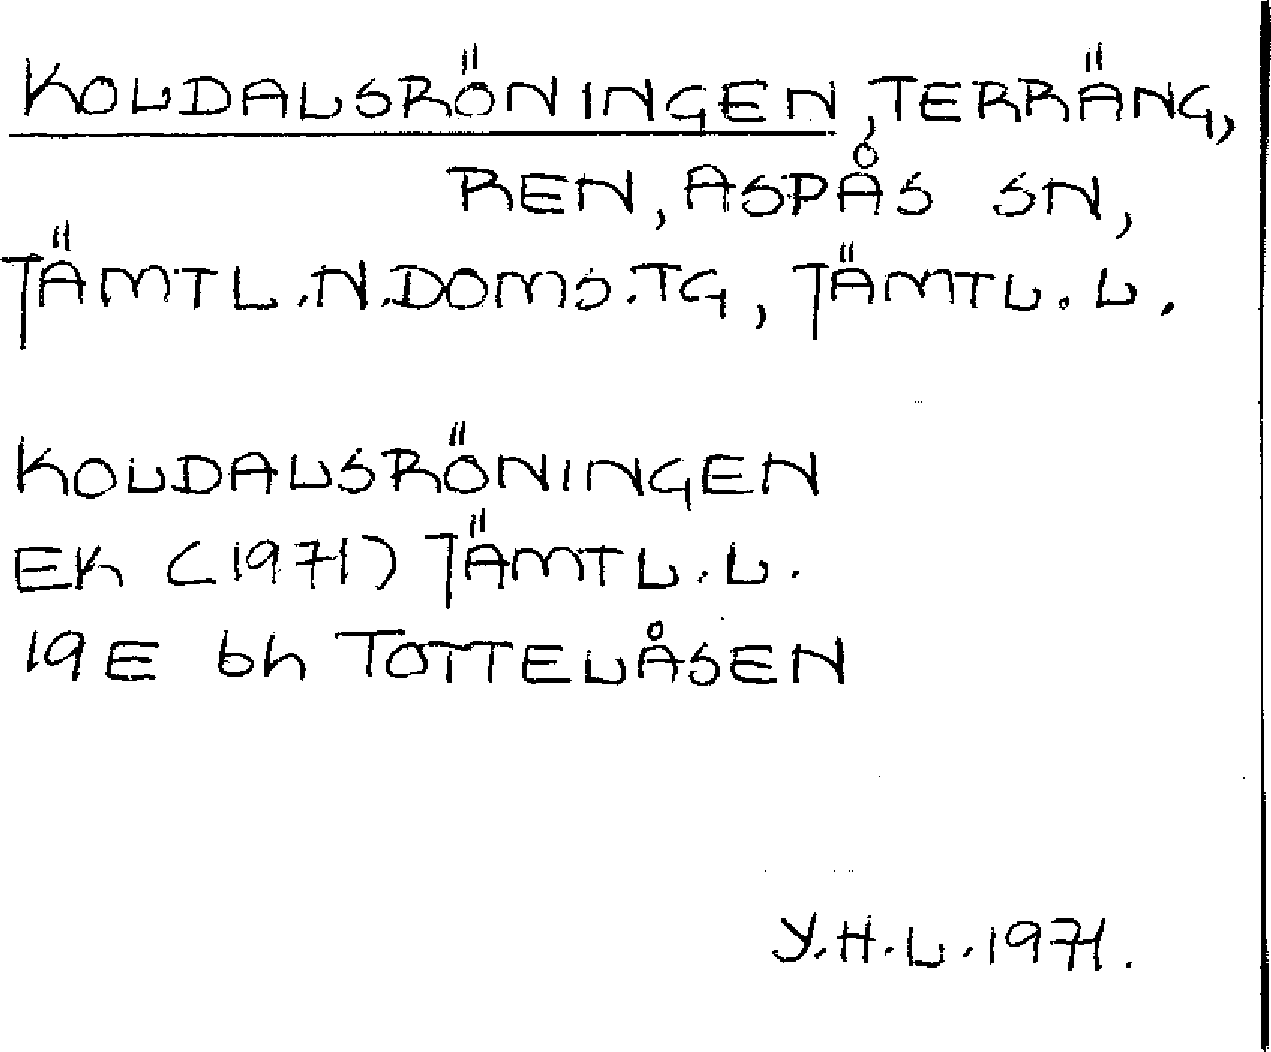 KOLDALSRÖNINGEN, TERRÄNG,
REN, ASPÅS SN,
JÄMTL.N.DOMS.TG, JÄMTL.L.
KOLDALSRÖNINGEN
EK (1971) JÄMTL.L.
19E bh TOTTELÅSEN
Y.H.L.1971.